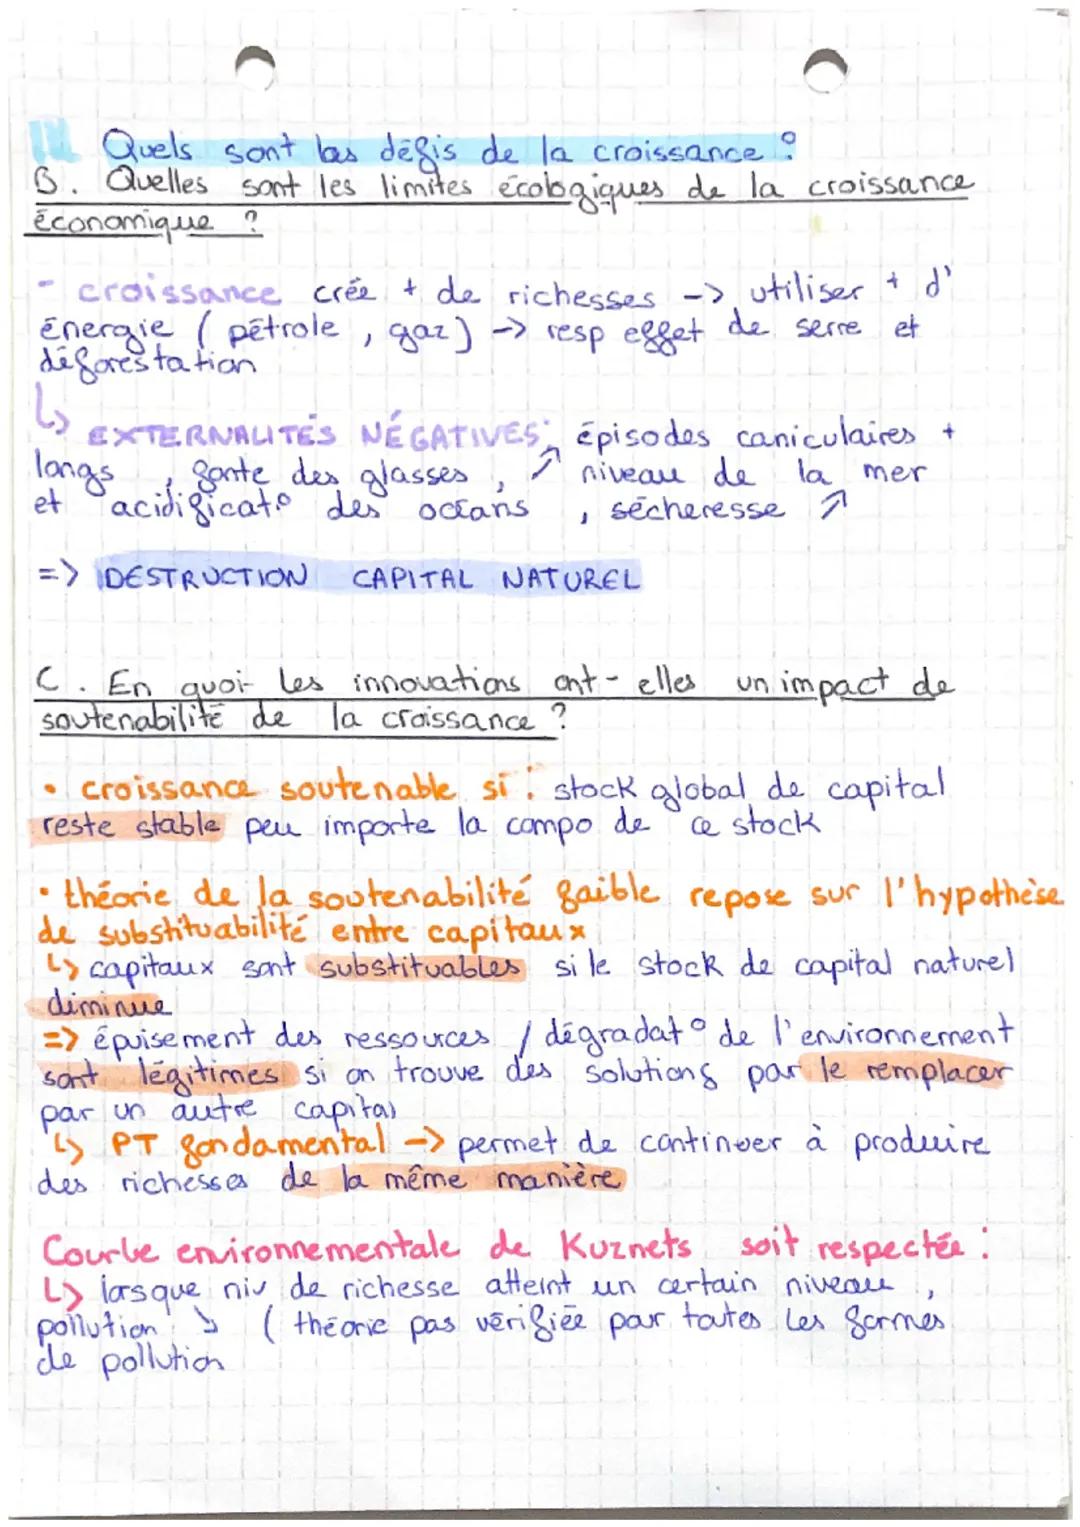 II. Quels sont les défis de la croissance ?
B. Quelles sont les limites écologiques de la croissance
économique ?
- croissance crée + de richesses -> utiliser + d'
énergie ( pétrole , gaz ) -> resp effet de serre et
déforestation
↳ EXTERNALITÉS NÉGATIVES: épisodes caniculaires +
longs , fonte des glasses , ↗ niveau de la mer
et acidificat° des océans , sécheresse ↗
=> DESTRUCTION CAPITAL NATUREL
C. En quoi les innovations ont-elles un impact de
soutenabilité de la croissance ?
• croissance soutenable si : stock global de capital
reste stable peu importe la compo de ce stock
• théorie de la soutenabilité faible repose sur l'hypothèse
de substituabilité entre capitaux
↳ capitaux sont substituables si le stock de capital naturel
diminue
=> épuisement des ressources / dégradat° de l'environnement
sont légitimes si on trouve des solutions pour le remplacer
par un autre capital
↳ PT fondamental -> permet de continuer à produire
des richesses de la même manière
Courbe environnementale de Kuznets soit respectée :
↳ lorsque niv de richesse atteint un certain niveau ,
pollution ↘ ( théorie pas vérifiée pour toutes les formes
de pollution